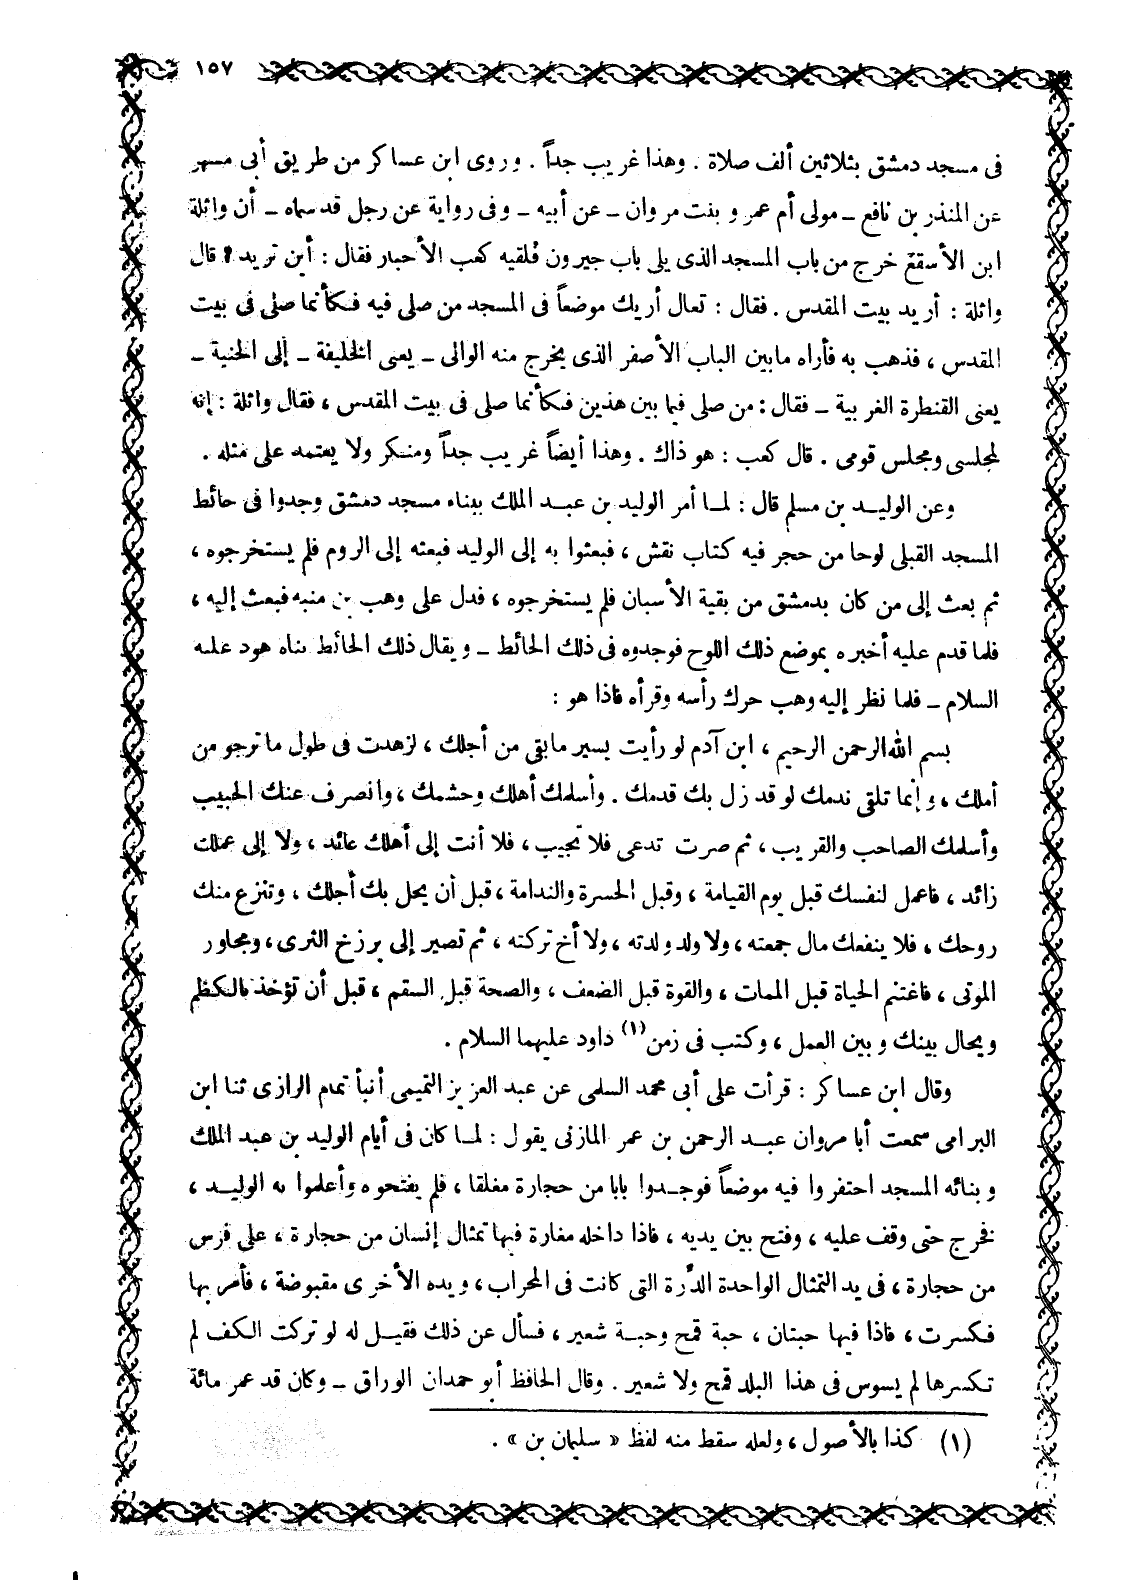 ١٥٧
فى مسجد دمشق بثلاثين ألف صلاة . وهذا غريب جداً . وروى ابن عساكر من طريق أبى مسهر
عن المنذر بن نافع ــ مولى أم عمرو بنت مروان ــ عن أبيه ــ وفى رواية عن رجل قد سماه ــ أن واثلة
ابن الأسقع خرج من باب المسجد الذى يلى باب جيرون فلقيه كعب الأحبار فقال : أين تريد ؟ قال
واثلة : أريد بيت المقدس . فقال : تعال أريك موضعاً فى المسجد من صلى فيه فكأنما صلى فى بيت
المقدس ، فذهب به فأراه ما بين الباب الأصفر الذى يخرج منه الوالى ــ يعنى الخليفة ــ إلى الحنية ــ
يعنى القنطرة الغربية ــ فقال : من صلى فيما بين هذين فكأنما صلى فى بيت المقدس ، فقال واثلة : إنه
لمجلسى ومجلس قومى . قال كعب : هو ذاك . وهذا أيضاً غريب جداً ومنكر ولا يعتمد على مثله .
وعن الوليد بن مسلم قال : لما أمر الوليد بن عبد الملك ببناء مسجد دمشق وجدوا فى حائط
المسجد القبلى لوحا من حجر فيه كتاب نقش ، فبعثوا به إلى الوليد فبعثه إلى الروم فلم يستخرجوه ،
ثم بعث إلى من كان بدمشق من بقية الأسبان فلم يستخرجوه ، فدل على وهب بن منبه فبعث إليه ،
فلما قدم عليه أخبره بموضع ذلك اللوح فوجدوه فى ذلك الحائط ــ ويقال ذلك الحائط بناه هود عليه
السلام ــ فلما نظر إليه وهب حرك رأسه وقرأه فاذا هو :
بسم الله الرحمن الرحيم ، ابن آدم لو رأيت يسير ما بقى من أجلك ، لزهدت فى طول ما ترجو من
أملك ، وإنما تلقى ندمك لو قد زل بك قدمك . وأسلمك أهلك وحشمك ، وانصرف عنك الحبيب
وأسلمك الصاحب والقريب ، ثم صرت تدعى فلا تجيب ، فلا أنت إلى أهلك عائد ، ولا إلى عملك
زائد ، فاعمل لنفسك قبل يوم القيامة ، وقبل الحسرة والندامة ، قبل أن يحل بك أجلك ، وتنزع منك
روحك ، فلا ينفعك مال جمعته ، ولا ولد ولدته ، ولا أخ تركته ، ثم تصير إلى برزخ الثرى ، ومجاور
الموتى ، فاغتنم الحياة قبل الممات ، والقوة قبل الضعف ، والصحة قبل السقم ، قبل أن تؤخذ بالكظم
ويحال بينك وبين العمل ، وكتب فى زمن (١) داود عليهما السلام .
وقال ابن عساكر : قرأت على أبى محمد السلمى عن عبد العزيز التميمى أنبأ تمام الرازى ثنا ابن
البرامى سمعت أبا مروان عبد الرحمن بن عمر المازنى يقول : لما كان فى أيام الوليد بن عبد الملك
وبنائه المسجد احتفروا فيه موضعاً فوجدوا بابا من حجارة مغلقا ، فلم يفتحوه وأعلموا به الوليد ،
فخرج حتى وقف عليه ، وفتح بين يديه ، فاذا داخله مغارة فيها تمثال إنسان من حجارة ، على فرس
من حجارة ، فى يد التمثال الواحدة الدُّرة التى كانت فى المحراب ، ويده الأخرى مقبوضة ، فأمر بها
فكسرت ، فاذا فيها حبتان ، حبة قمح وحبة شعير ، فسأل عن ذلك فقيل له لو تركت الكف لم
تكسرها لم يسوس فى هذا البلد قمح ولا شعير . وقال الحافظ أبو حمدان الوراق ــ وكان قد عمر مائة
(١) كذا بالأصول ، ولعله سقط منه لفظ « سليمان بن » .